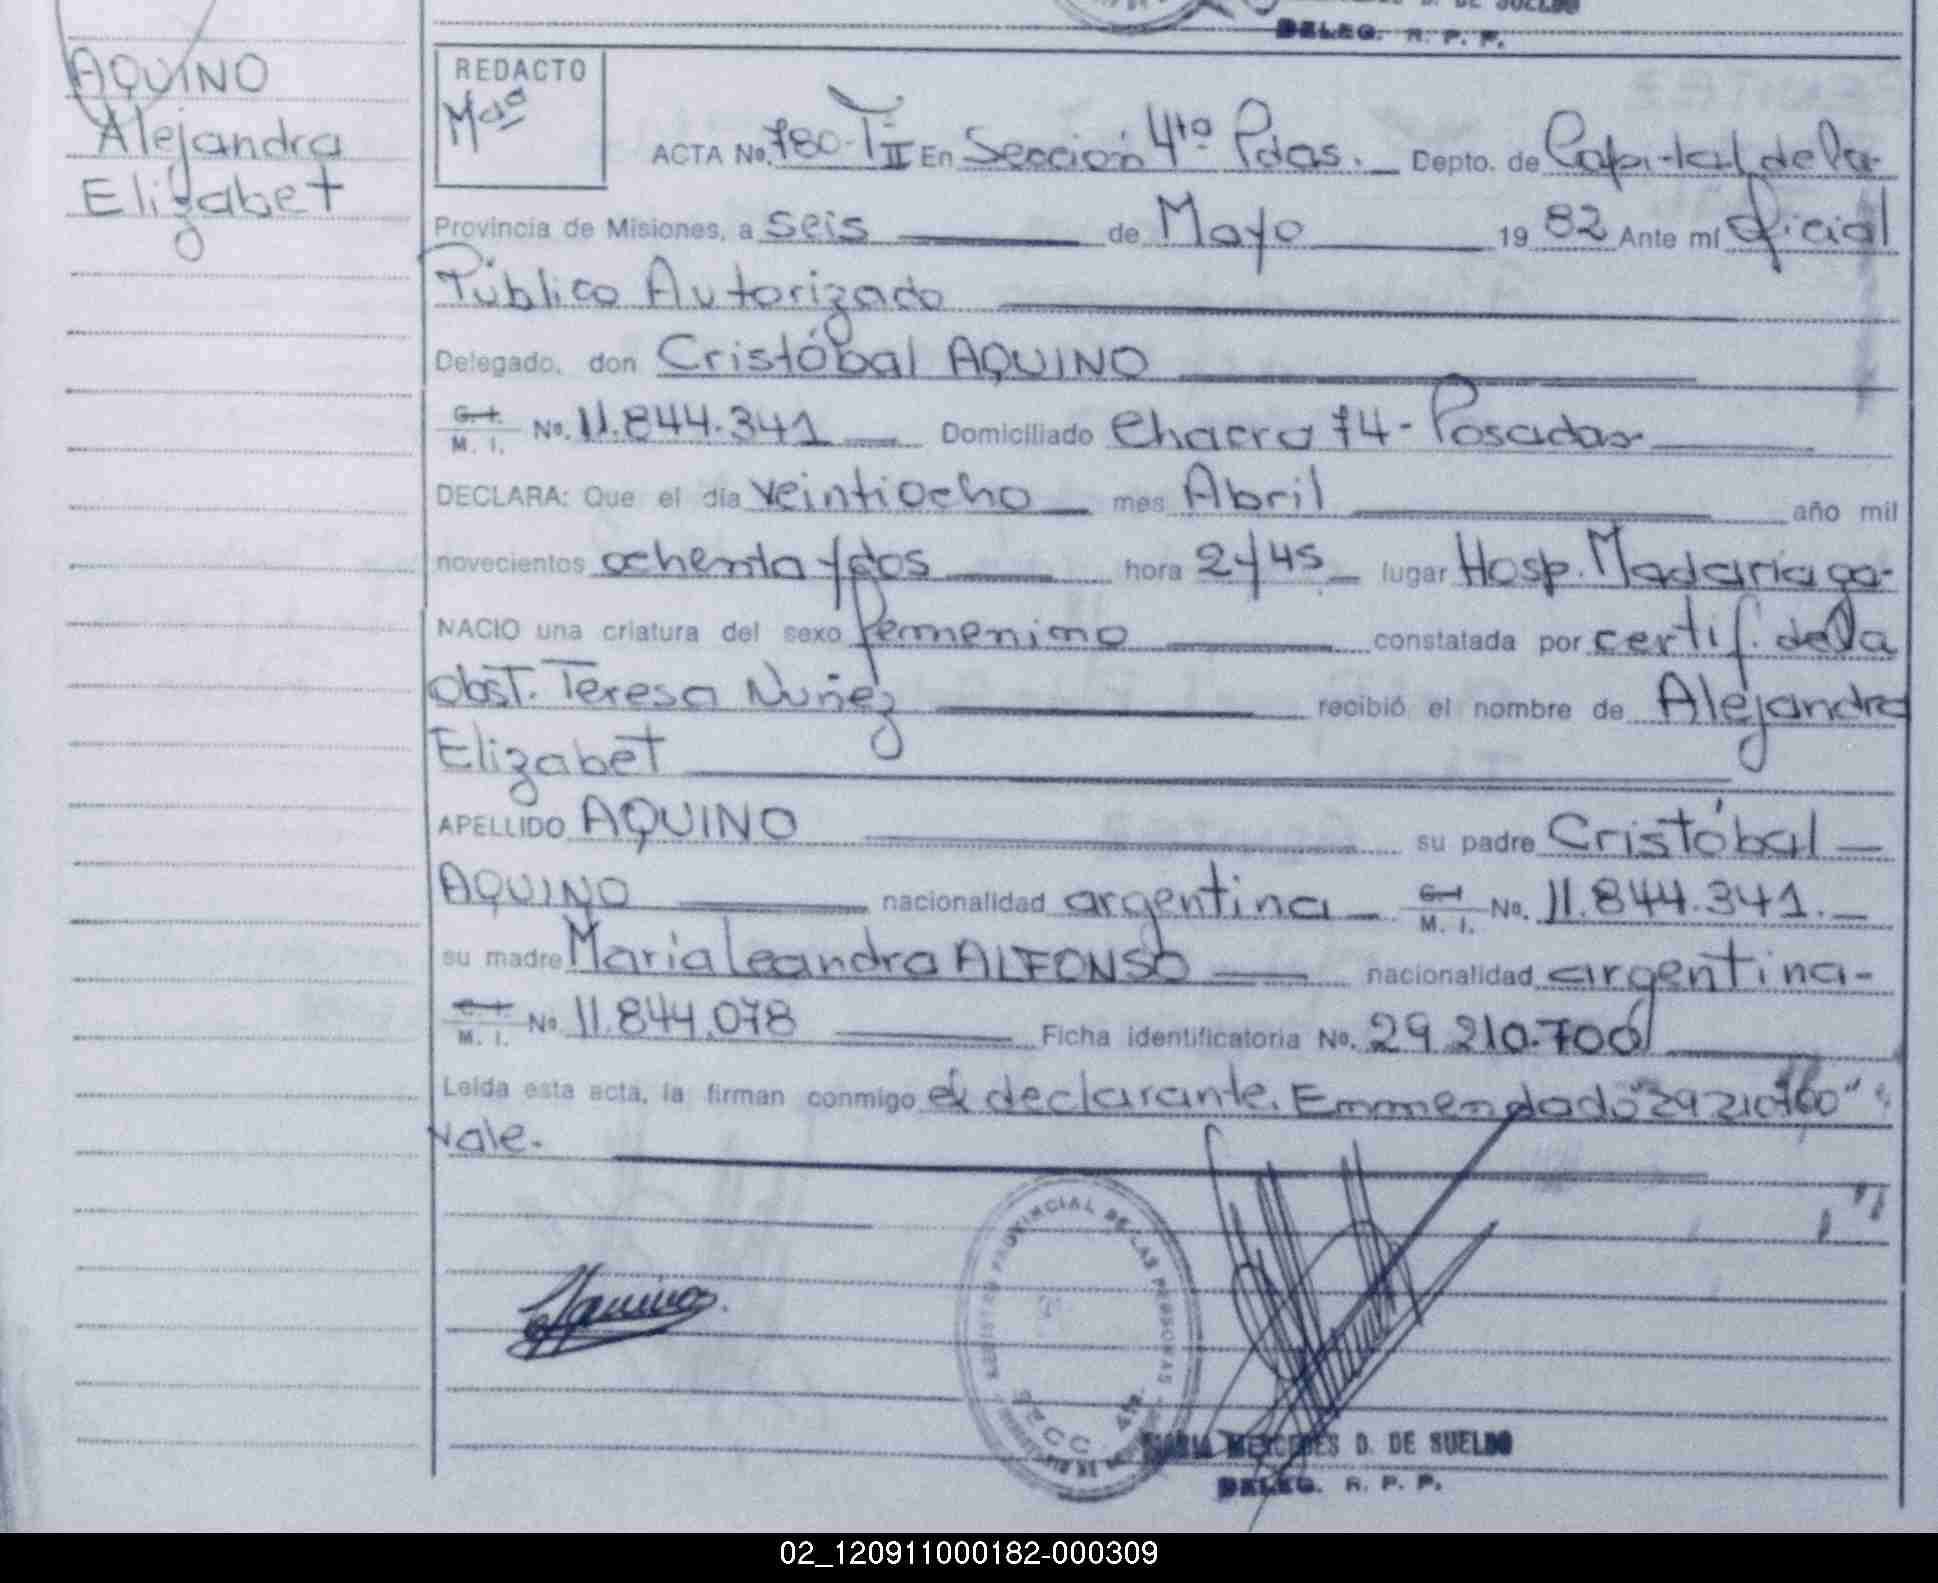 D. DE SUELDO
DELEG. R. P. P.
AQUINO
Alejandra
Elizabet
REDACTO
Mdª
ACTA No. 780-T II En Sección 4ta Pdas. Depto. de Capital de la
Provincia de Misiones, a seis de Mayo 1982 Ante mí Oficial
Público Autorizado
Delegado, don Cristóbal AQUINO
C. I. M. I. No. 11.844.341 Domiciliado Chacra 74 - Posadas
DECLARA: Que el día veintiocho mes Abril año mil
novecientos ochenta y dos hora 2y45 lugar Hosp. Madariaga-
NACIO una criatura del sexo femenino constatada por certif. de la
obst. Teresa Nuñez recibió el nombre de Alejandra
Elizabet
APELLIDO AQUINO su padre Cristóbal
AQUINO nacionalidad argentina C. I. M. I. No. 11.844.341.
su madre Maria Leandra ALFONSO nacionalidad argentina-
C. I. M. I. No. 11.844.078 Ficha identificatoria No. 29.210.700
Leída esta acta, la firman conmigo el declarante. Enmendado "29210700"
Vale.
REGISTRO PROVINCIAL DE LAS PERSONAS
SECC. 4ta.
MARIA MERCEDES D. DE SUELDO
DELEG. R. P. P.
02_120911000182-000309